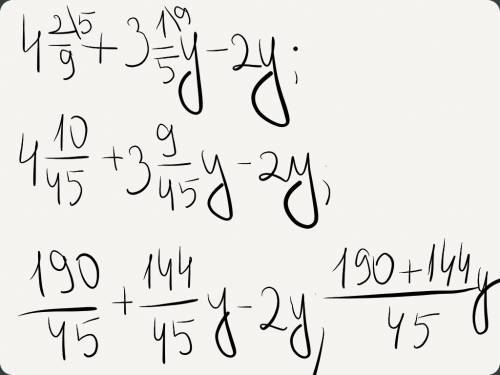 4 2\5/9 + 3 1\9/5 y - 2y;
4 10/45 + 3 9/45 y - 2y;
190/45 + 144/45 y - 2y, 190+144y/45